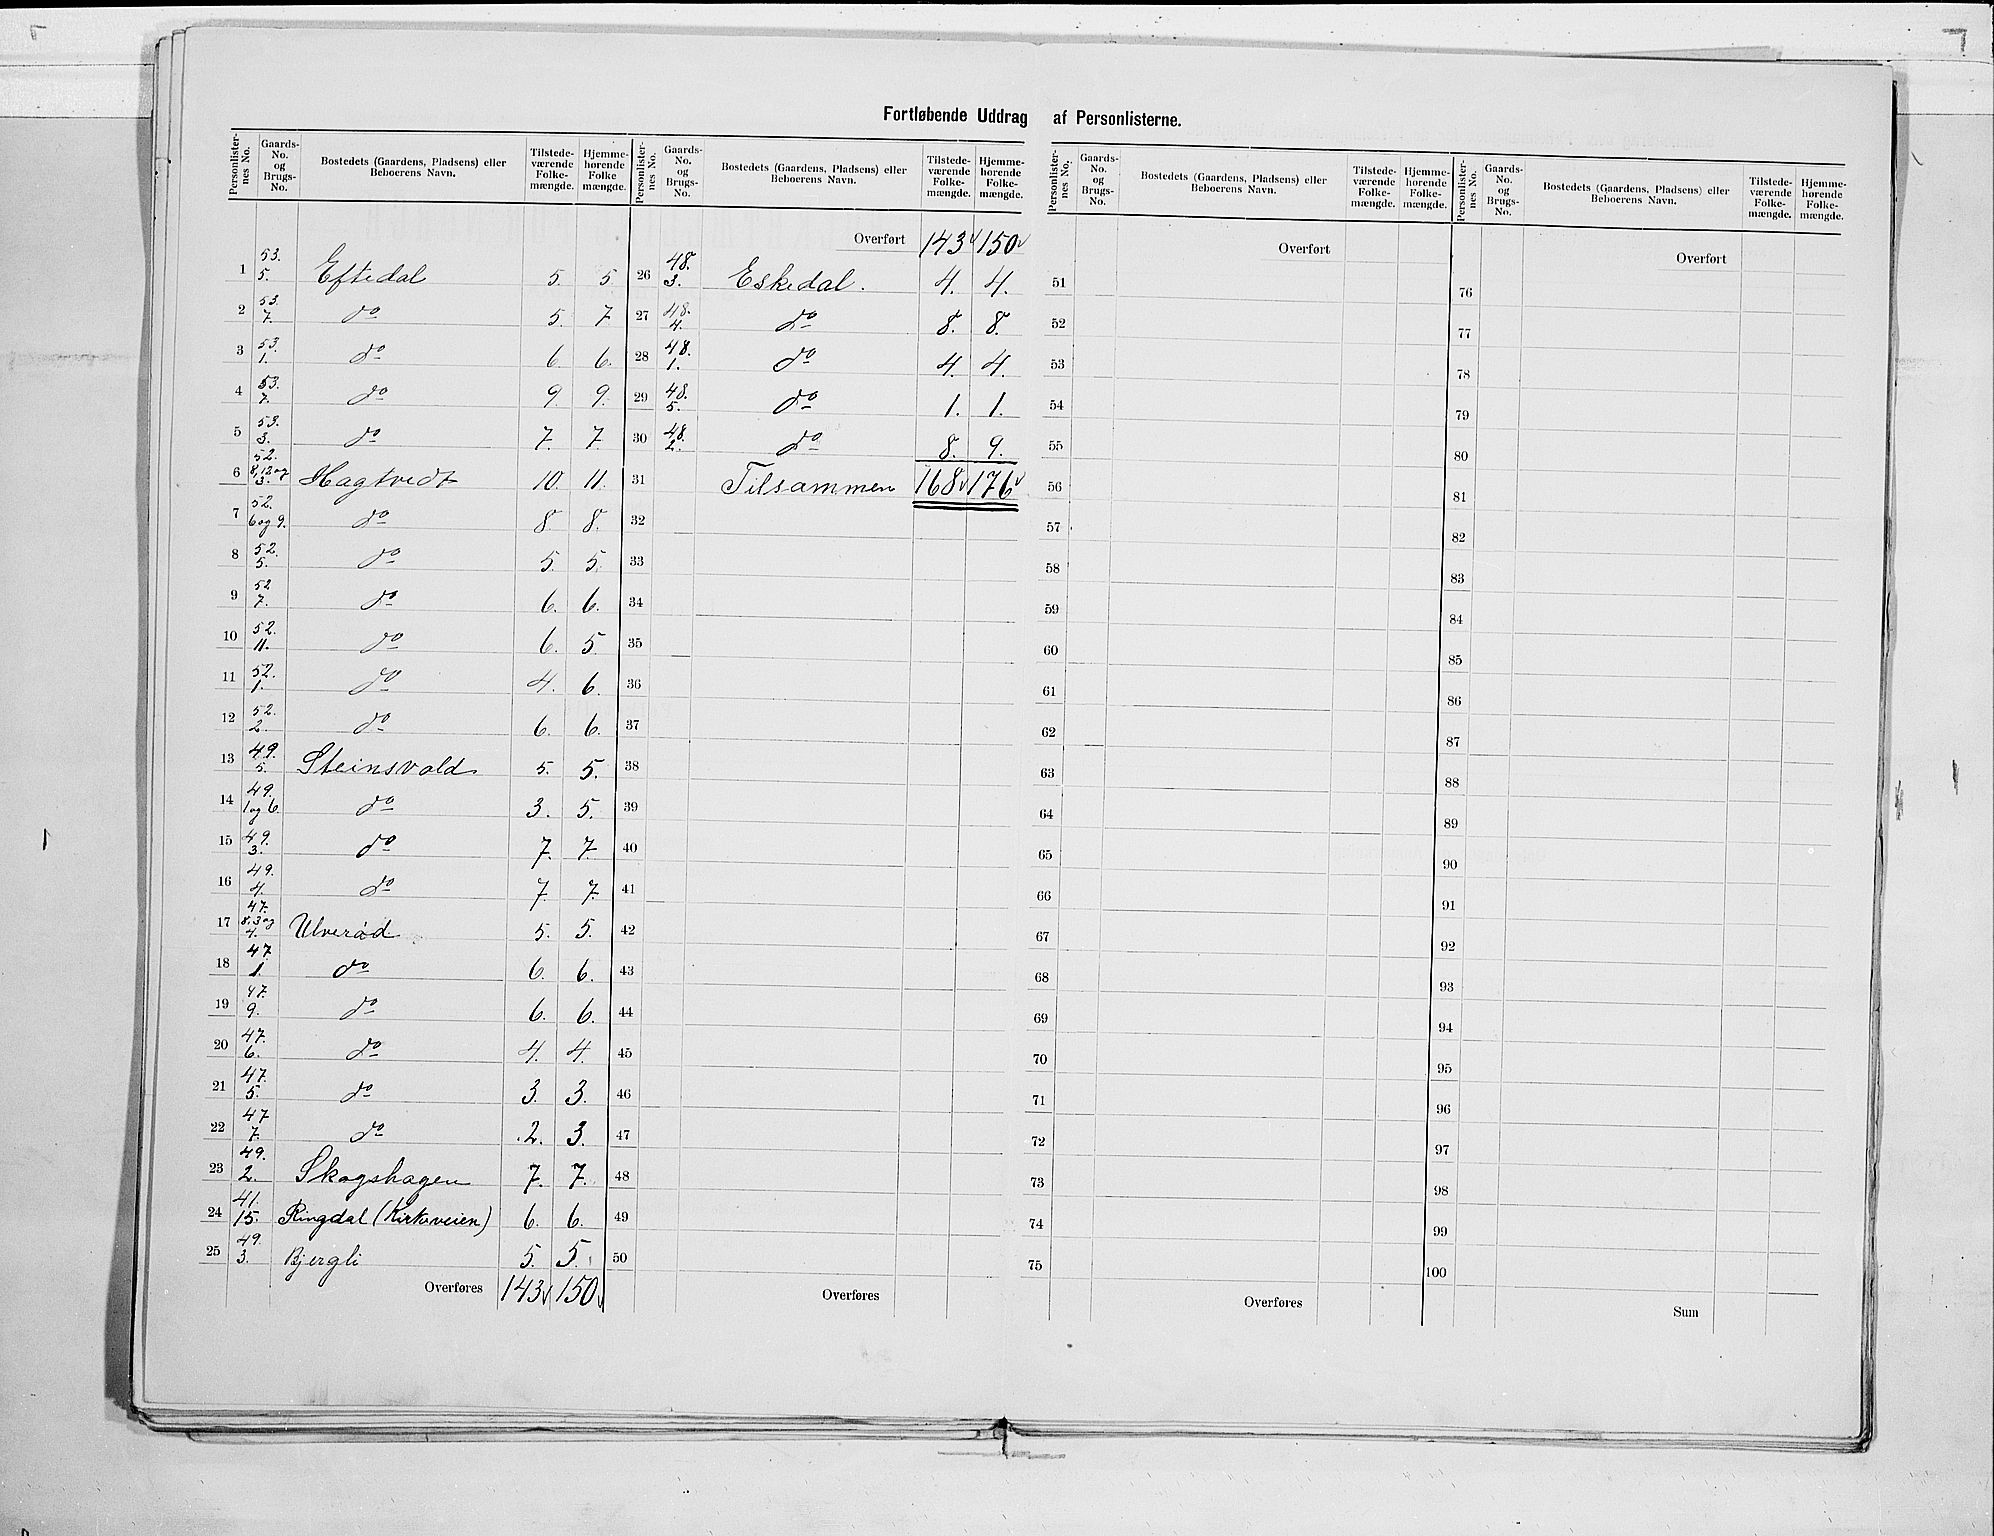 Fortløbende Uddrag af Personlisterne.
Personlisternes No. | Gaards-No. og Brugs-No. | Bostedets (Gaardens, Pladsens) eller Beboerens Navn. | Tilstedeværende Folkemængde. | Hjemmehørende Folkemængde.
1 | 53. 5. | Eftedal | 5. | 5
2 | 53. 7. | do | 5. | 7
3 | 53. 1. | do | 6. | 6.
4 | 53. 7. | do | 9. | 9.
5 | 53. 3. | do | 7. | 7.
6 | 52. 8, 12 og 3. | Hagtvedt | 10. | 11.
7 | 52. 6 og 9. | do | 8. | 8.
8 | 52. 5. | do | 5. | 5.
9 | 52 7. | do | 6. | 6.
10 | 52. 11. | do | 6. | 5.
11 | 52. 1. | do | 4. | 6.
12 | 52. 2. | do | 6. | 6.
13 | 49. 5. | Steinsvold | 5. | 5.
14 | 49. 1 og 6. | do | 3. | 5.
15 | 49. 3. | do | 7. | 7.
16 | 49. 4. | do | 7. | 7.
17 | 47. 8, 3 og 4. | Ulverød | 5. | 5.
18 | 47 1. | do | 6. | 6.
19 | 47. 9. | do | 6. | 6.
20 | 47. 6. | do | 4. | 4.
21 | 47. 5. | do | 3. | 3.
22 | 47 7. | do | 2. | 3.
23 | 49. 2. | Skogshagen | 7. | 7.
24 | 41. 15. | Ringdal (Kirkeveien) | 6. | 6.
25 | 49. 3. | Bjergli | 5. | 5.
Overføres | 143 | 150
Personlisternes No. | Gaards-No. og Brugs-No. | Bostedets (Gaardens, Pladsens) eller Beboerens Navn. | Tilstedeværende Folkemængde. | Hjemmehørende Folkemængde.
Overført | 143 | 150
26 | 48. 3. | Eskedal. | 4. | 4.
27 | 48. 4. | do | 8. | 8.
28 | 48. 1. | do | 4. | 4.
29 | 48. 5. | do | 1. | 1.
30 | 48. 2. | do | 8. | 9.
31 | Tilsammen | 168 | 176
32
33
34
35
36
37
38
39
40
41
42
43
44
45
46
47
48
49
50
Overføres
Personlisternes No. | Gaards-No. og Brugs-No. | Bostedets (Gaardens, Pladsens) eller Beboerens Navn. | Tilstedeværende Folkemængde. | Hjemmehørende Folkemængde.
Overført
51
52
53
54
55
56
57
58
59
60
61
62
63
64
65
66
67
68
69
70
71
72
73
74
75
Overføres
Personlisternes No. | Gaards-No. og Brugs-No. | Bostedets (Gaardens, Pladsens) eller Beboerens Navn. | Tilstedeværende Folkemængde. | Hjemmehørende Folkemængde.
Overført
76
77
78
79
80
81
82
83
84
85
86
87
88
89
90
91
92
93
94
95
96
97
98
99
100
Sum